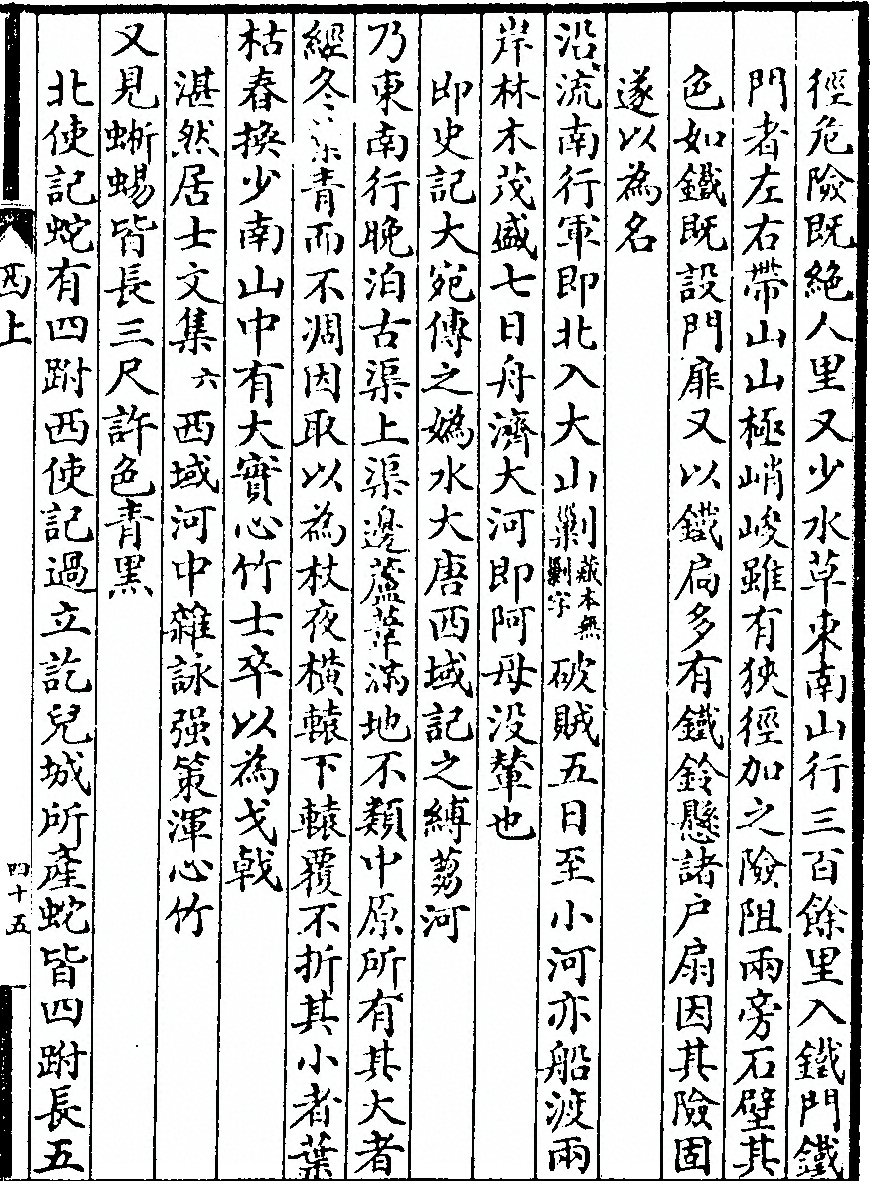 徑危險既絶人里又少水草東南山行三百餘里入鐵門鐵
門者左右帶山山極峭峻雖有狹徑加之險阻兩旁石壁其
色如鐵既設門扉又以鐵扃多有鐵鈴懸諸户扇因其險固
遂以為名
沿流南行軍即北入大山剿藏本無剿字破賊五日至小河亦船渡兩
岸林木茂盛七日舟濟大河即阿母没輦也
即史記大宛傳之嬀水大唐西域記之縛芻河
乃東南行晚泊古渠上渠邊蘆葦滿地不類中原所有其大者
經冬葉青而不凋因取以為杖夜橫轅下轅覆不折其小者葉
枯春換少南山中有大實心竹士卒以為戈戟
湛然居士文集六西域河中雜詠强策渾心竹
又見蜥蜴皆長三尺許色青黑
北使記蛇有四跗西使記過立訖兒城所產蛇皆四跗長五
西上
四十五